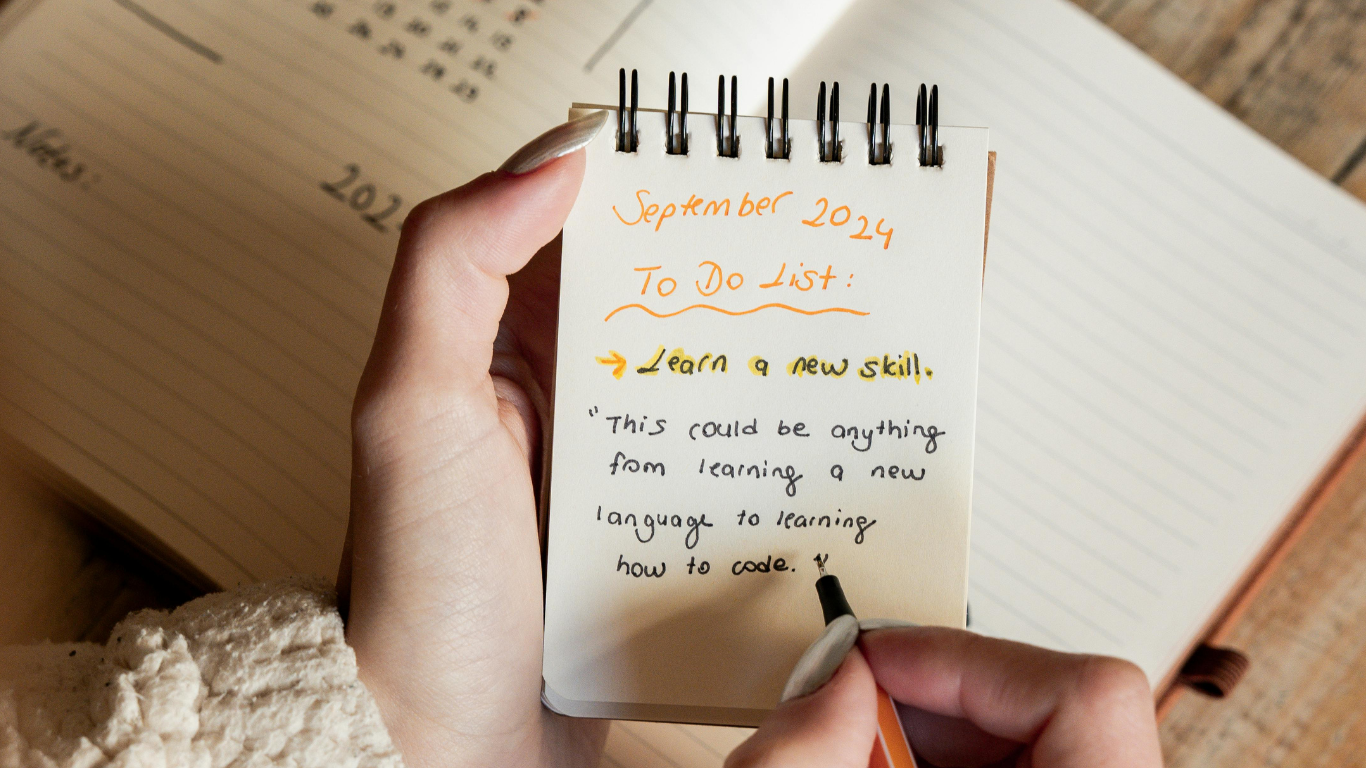 September 2024
To Do List:
→ Learn a new skill.
"This could be anything
from learning a new
language to learning
how to code."
Notes:
202